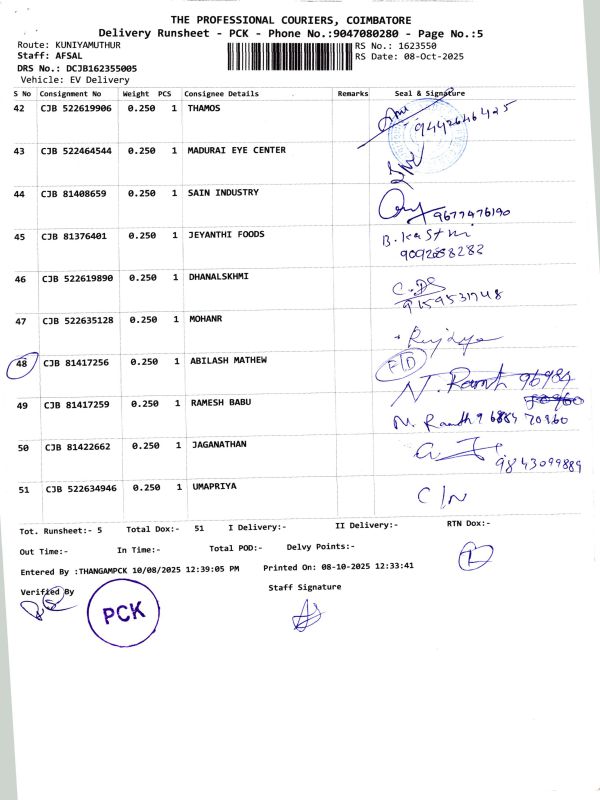 THE PROFESSIONAL COURIERS, COIMBATORE
Delivery Runsheet - PCK - Phone No.:9047080280 - Page No.:5
Route: KUNIYAMUTHUR RS No.: 1623550
Staff: AFSAL RS Date: 08-Oct-2025
DRS No.: DCJB162355005
Vehicle: EV Delivery
S No Consignment No Weight PCS Consignee Details Remarks Seal & Signature
42 CJB 522619906 0.250 1 THAMOS
9442646425
43 CJB 522464544 0.250 1 MADURAI EYE CENTER
44 CJB 81408659 0.250 1 SAIN INDUSTRY
9677476190
45 CJB 81376401 0.250 1 JEYANTHI FOODS B. Kasthi
46 CJB 522619890 0.250 1 DHANALSKHMI
9159531748
47 CJB 522635128 0.250 1 MOHANR
48 CJB 81417256 0.250 1 ABILASH MATHEW F/D
49 CJB 81417259 0.250 1 RAMESH BABU
50 CJB 81422662 0.250 1 JAGANATHAN
9843099889
51 CJB 522634946 0.250 1 UMAPRIYA C/N
Tot. Runsheet:- 5 Total Dox:- 51 I Delivery:- II Delivery:- RTN Dox:-
Out Time:- In Time:- Total POD:- Delvy Points:-
Entered By :THANGAMPCK 10/08/2025 12:39:05 PM Printed On: 08-10-2025 12:33:41
Verified By Staff Signature
PCK